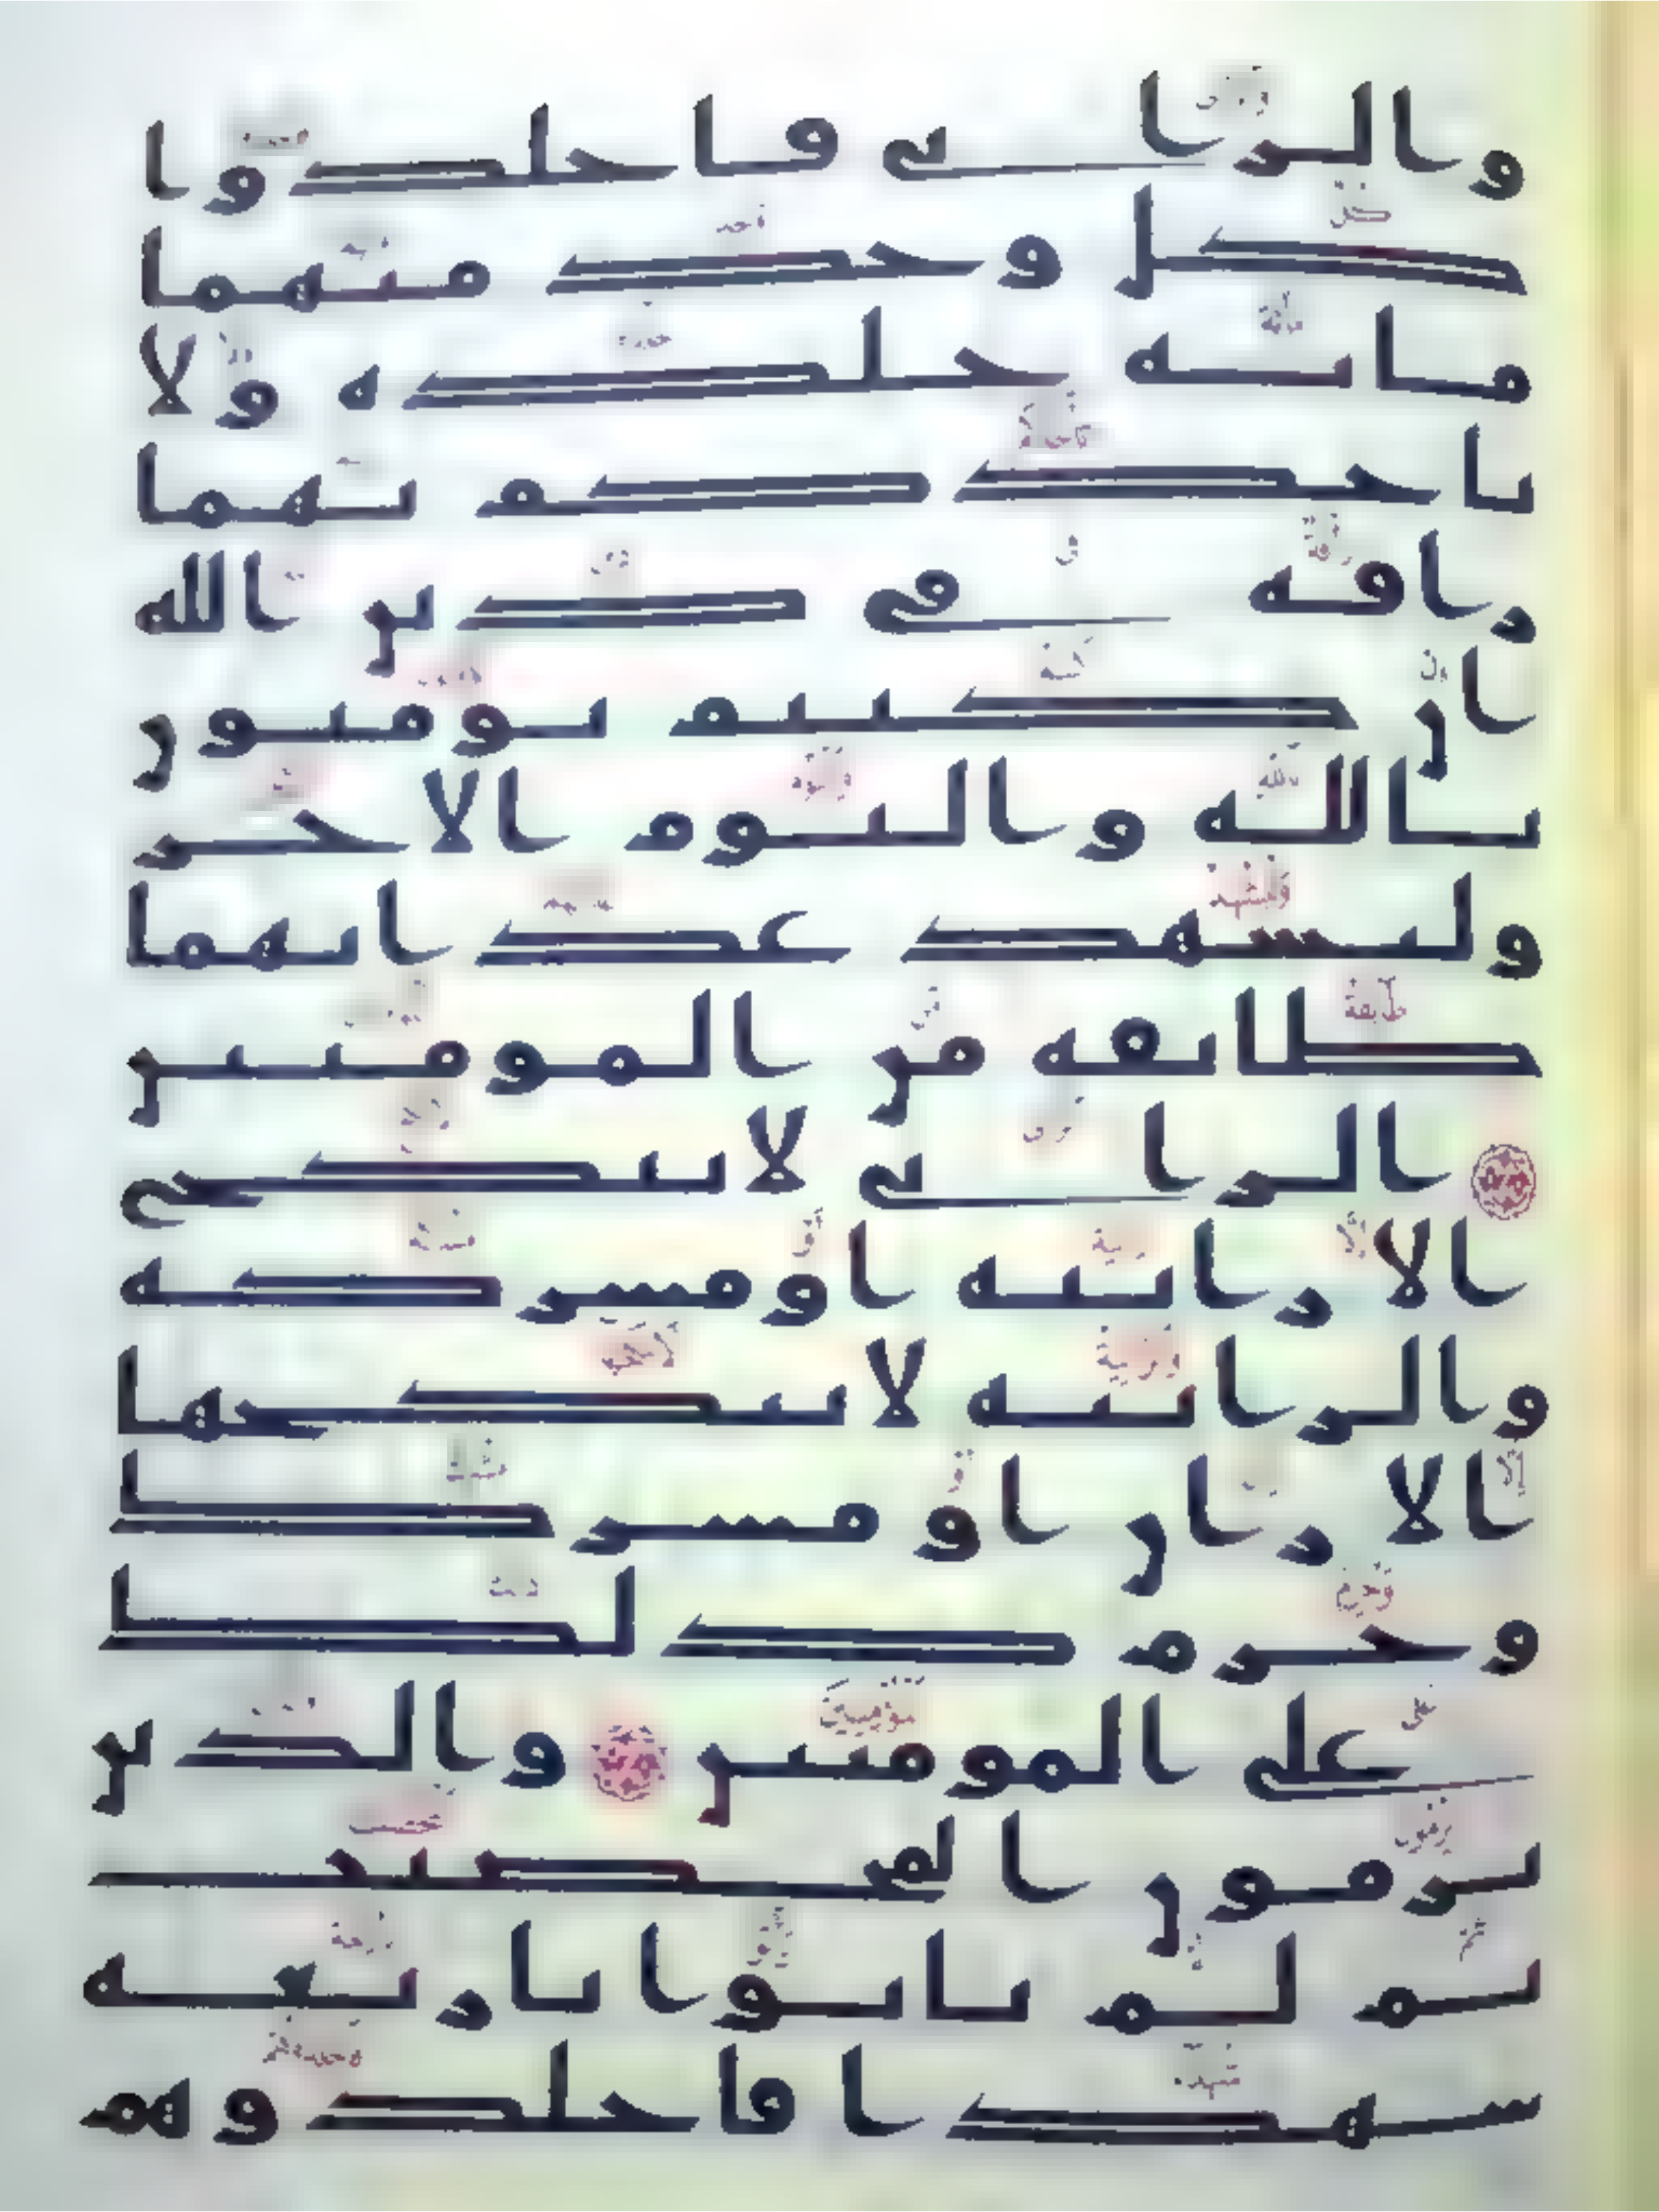 والزانى فاجلدوا
كل وحد منهما
مائة جلدة ولا
تاخذكم بهما
رافة فى دين الله
ان كنتم تومنون
بالله واليوم الاخر
وليشهد عذابهما
طائفة من المومنين
الزانى لا ينكح
الا زانية او مشركة
والزانية لا ينكحها
الا زان او مشرك
وحرم ذلك
على المومنين والذين
يرمون المحصنت
ثم لم ياتوا باربعة
شهدا فاجلدوهم